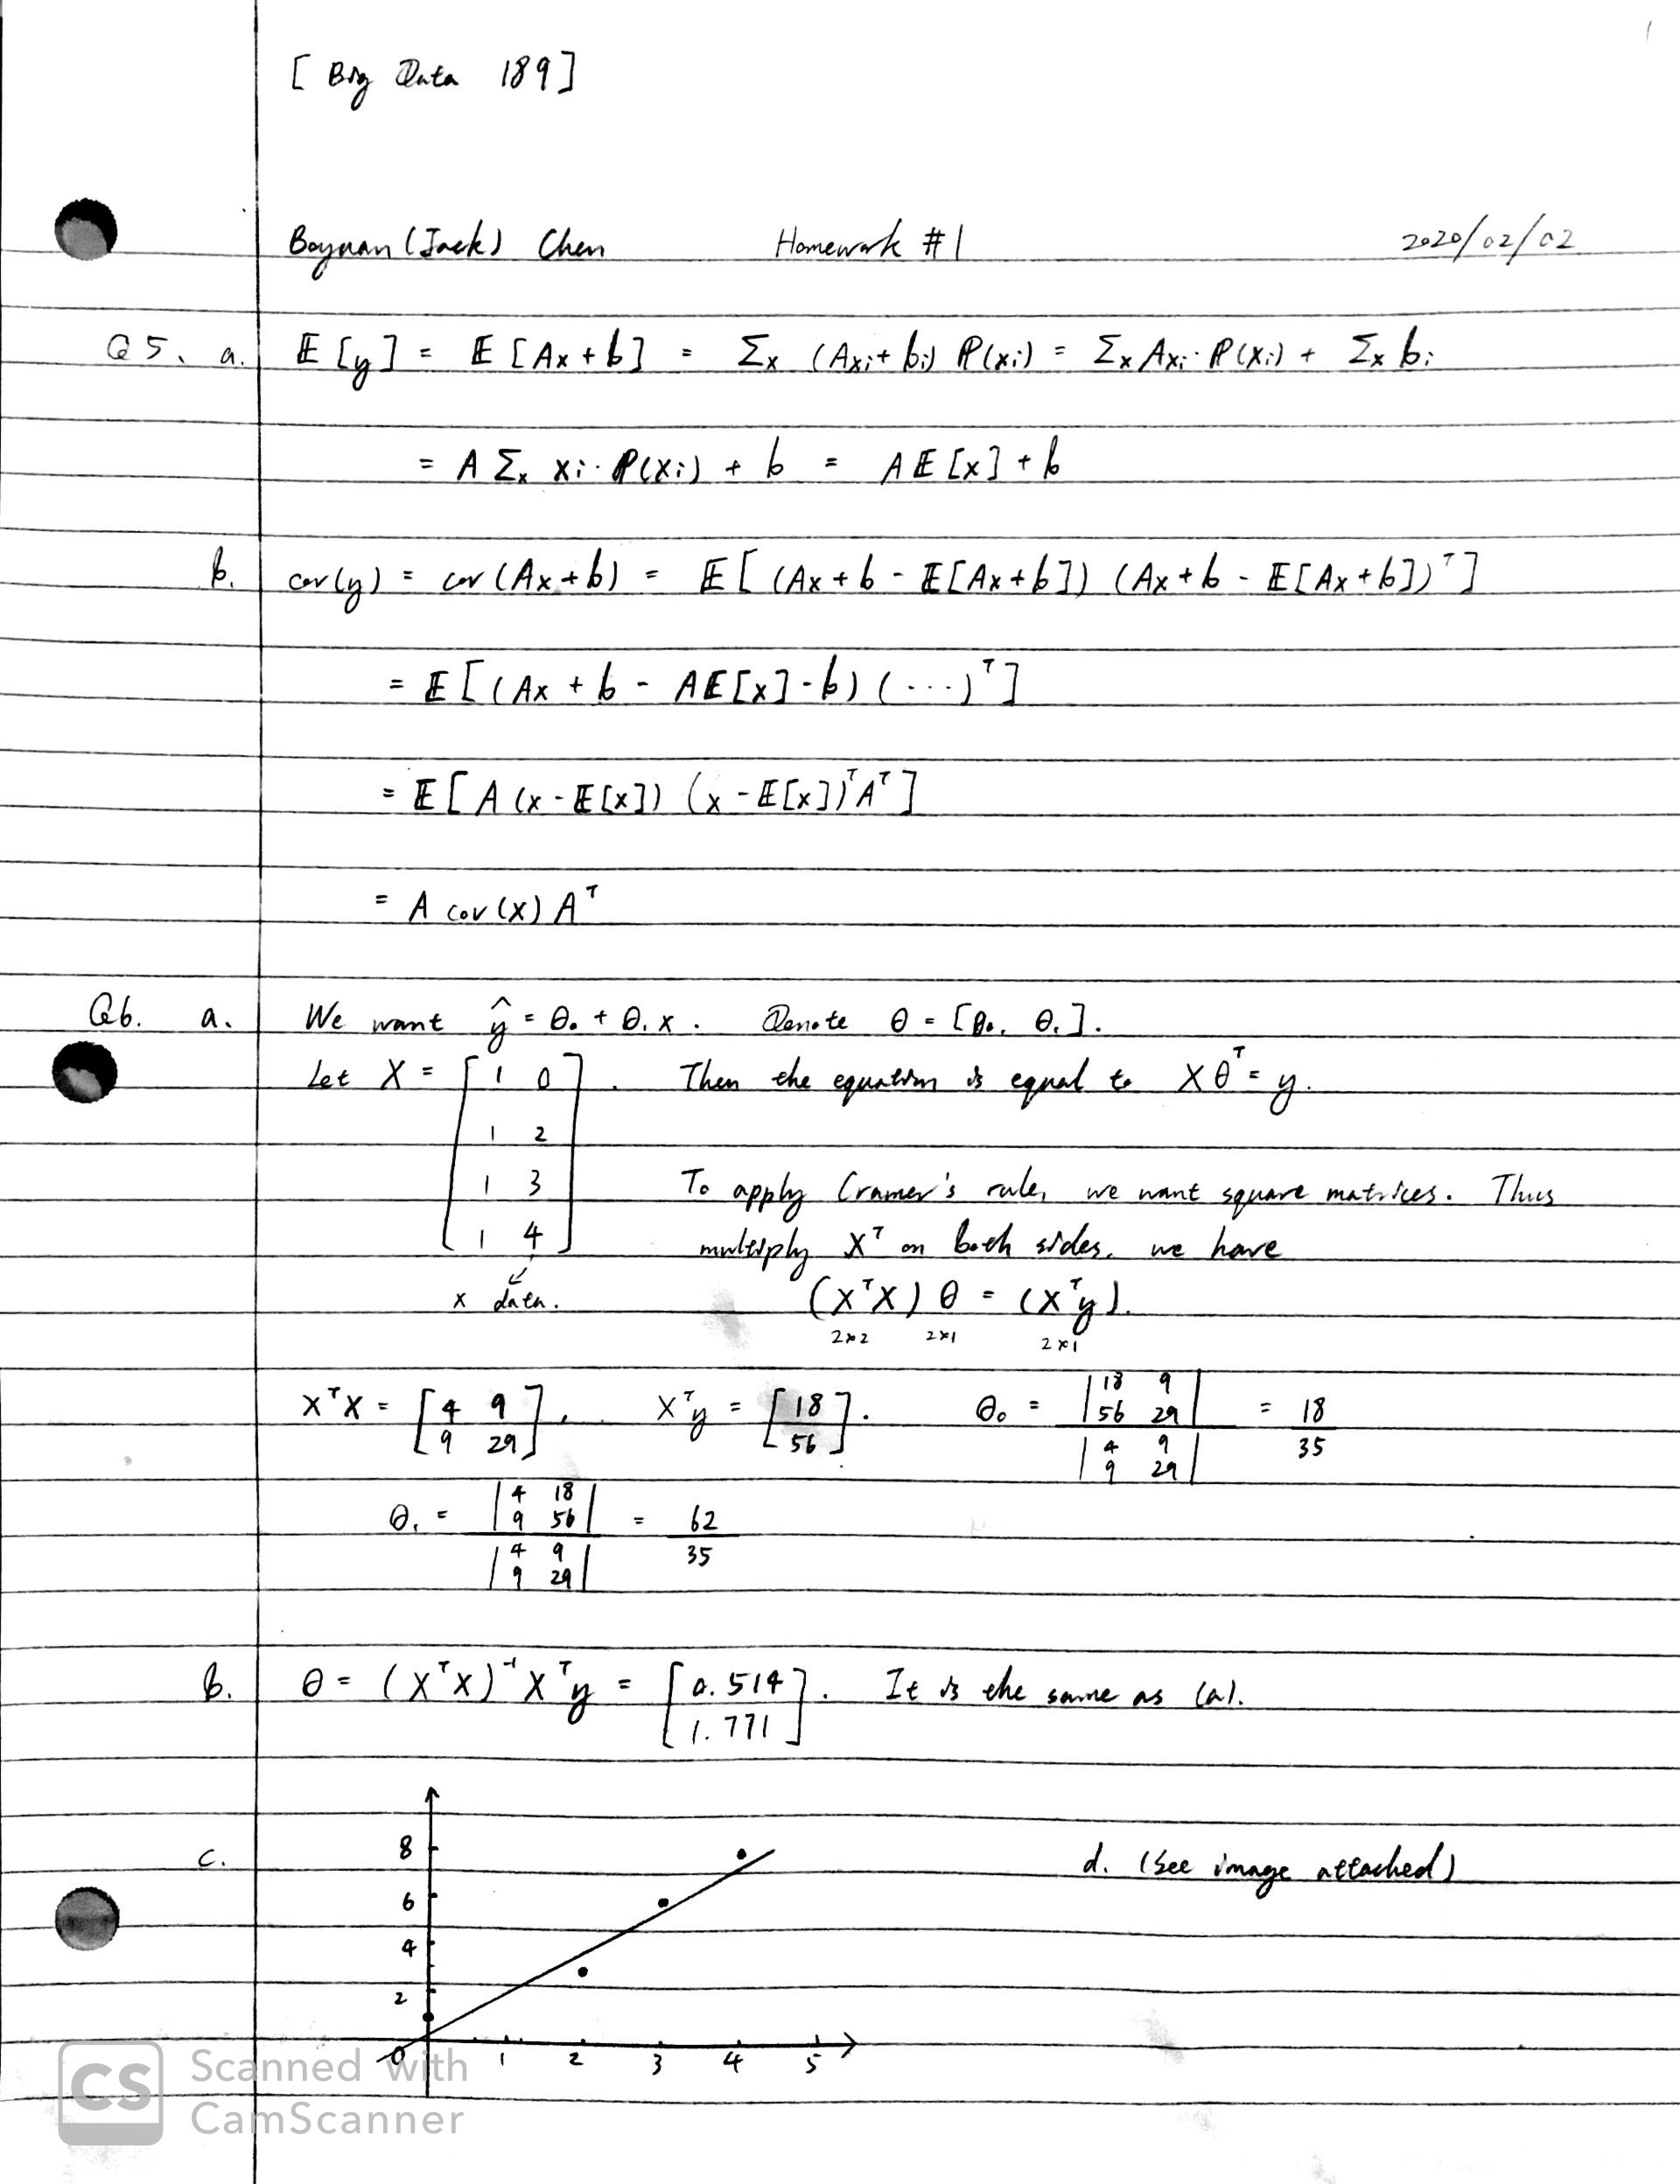 [ Big Data 189 ]
Boyuan (Jack) Chen Homework #1 2020/02/02
Q5. a. 𝔼[y] = 𝔼[Ax+b] = Σₓ (Axᵢ + bᵢ) ℙ(xᵢ) = Σₓ Axᵢ · ℙ(xᵢ) + Σₓ bᵢ
= A Σₓ xᵢ · ℙ(xᵢ) + b = A𝔼[x] + b
b. cov(y) = cov(Ax+b) = 𝔼[(Ax+b - 𝔼[Ax+b]) (Ax+b - 𝔼[Ax+b])ᵀ]
= 𝔼[(Ax + b - A𝔼[x] - b) (···)ᵀ]
= 𝔼[A(x - 𝔼[x]) (x - 𝔼[x])ᵀAᵀ]
= A cov(x) Aᵀ
Q6. a. We want ŷ = θ₀ + θ₁x. Denote θ = [θ₀, θ₁].
Let X = [1 0 . Then the equation is equal to Xθᵀ = y.
1 2
1 3 To apply Cramer's rule, we want square matrices. Thus
1 4] multiply Xᵀ on both sides, we have
x data. (XᵀX) θ = (Xᵀy).
2×2 2×1 2×1
XᵀX = [4 9; 9 29], Xᵀy = [18; 56]. θ₀ = |18 9; 56 29| / |4 9; 9 29| = 18/35
θ₁ = |4 18; 9 56| / |4 9; 9 29| = 62/35
b. θ = (XᵀX)⁻¹Xᵀy = [0.514; 1.771]. It is the same as (a).
c. d. (See image attached)
8
6
4
2
0 1 2 3 4 5
CS Scanned with
CamScanner
1